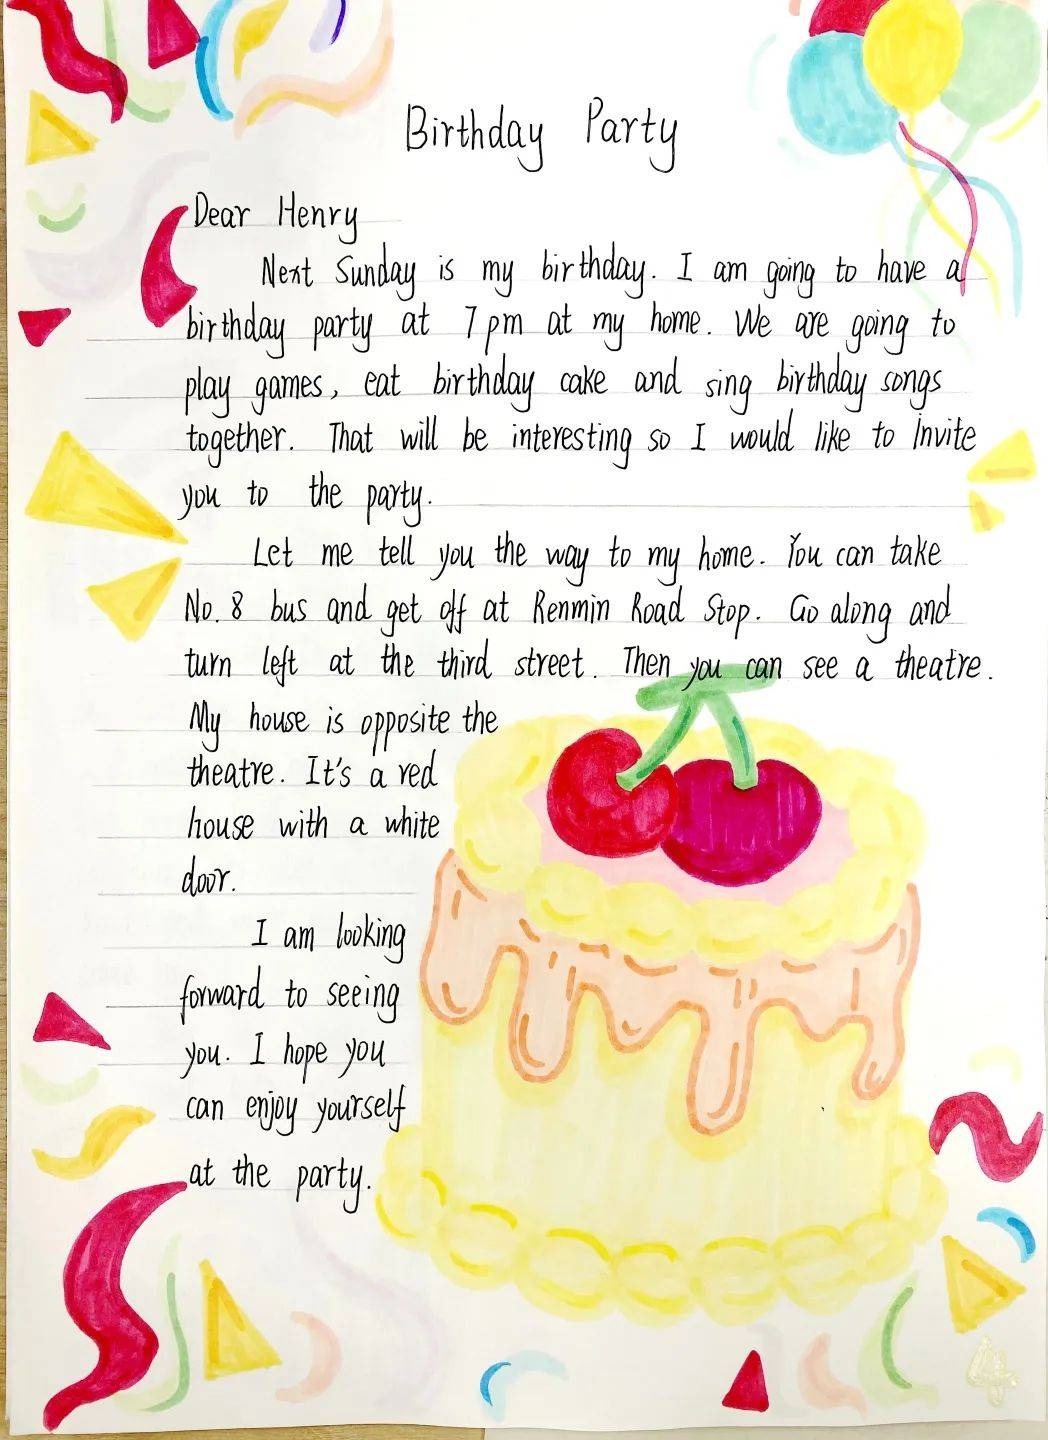 Birthday Party
Dear Henry
Next Sunday is my birthday. I am going to have a
birthday party at 7pm at my home. We are going to
play games, eat birthday cake and sing birthday songs
together. That will be interesting so I would like to Invite
you to the party.
Let me tell you the way to my home. You can take
No. 8 bus and get off at Renmin Road Stop. Go along and
turn left at the third street. Then you can see a theatre.
My house is opposite the
theatre. It's a red
house with a white
door.
I am looking
forward to seeing
you. I hope you
can enjoy yourself
at the party.
4